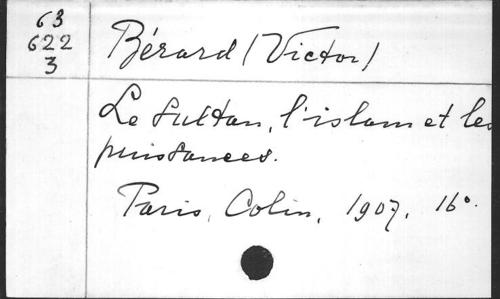 63
622
3
Bérard (Victor)
Le Sultan, l'islam et les
puissances.
Paris, Colin, 1907. 16°.